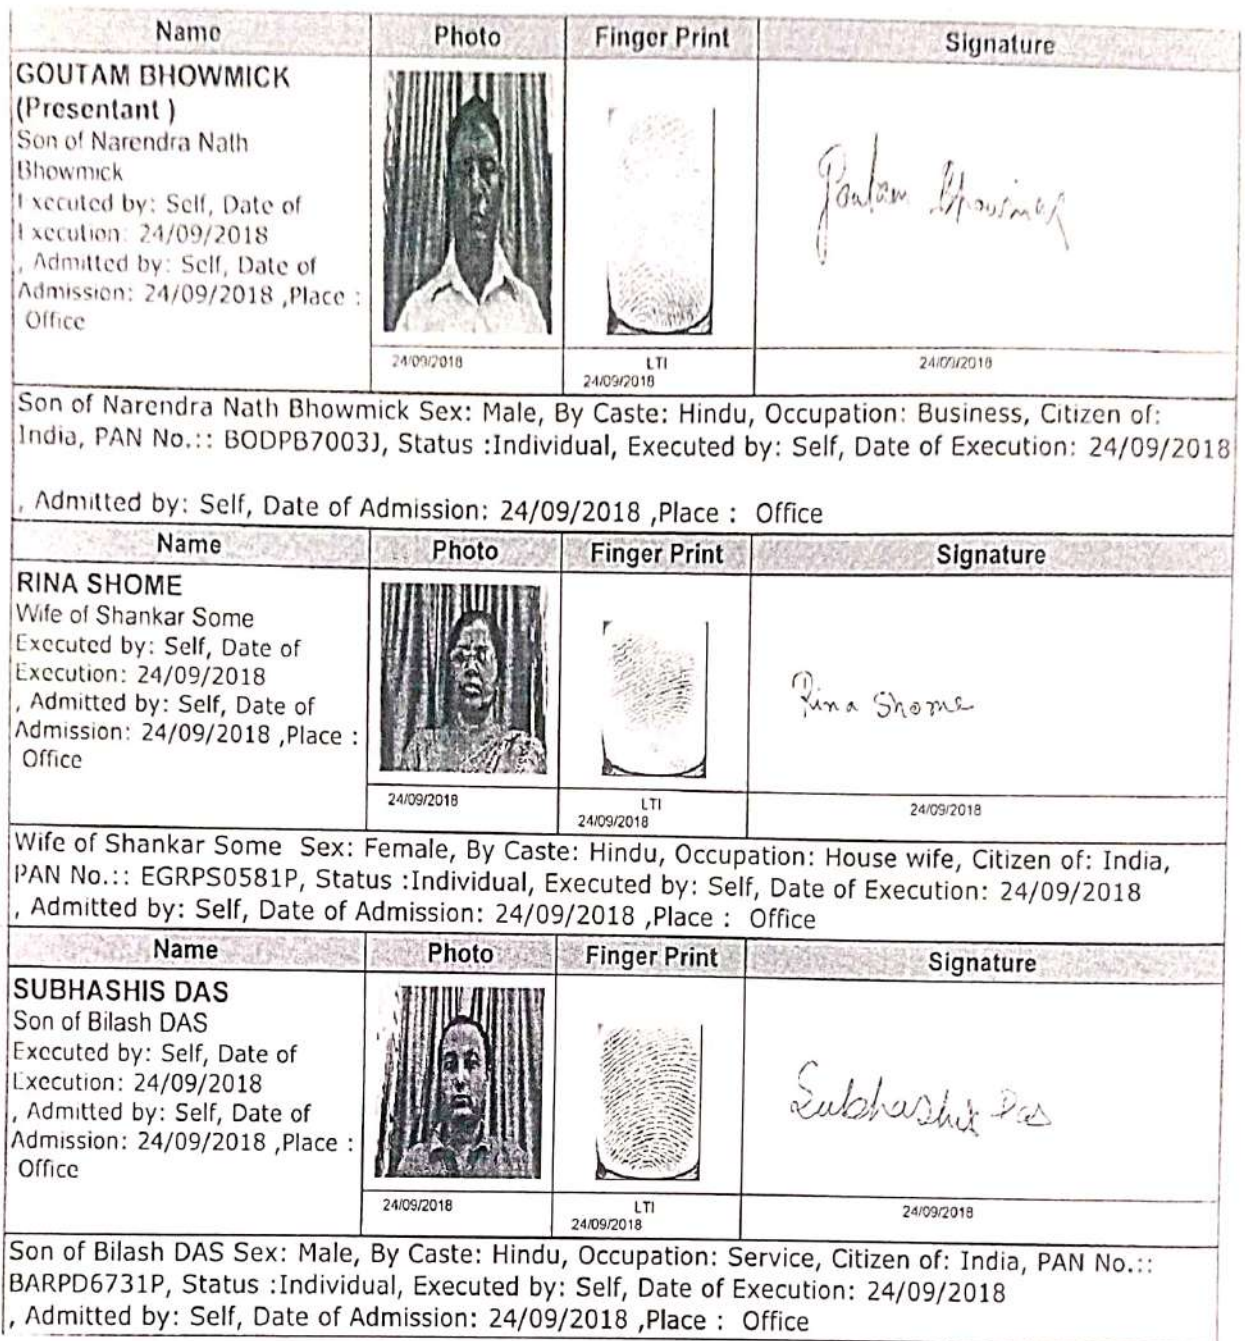 Name Photo Finger Print Signature
GOUTAM BHOWMICK
(Presentant )
Son of Narendra Nath
Bhowmick
Executed by: Self, Date of
Execution: 24/09/2018
, Admitted by: Self, Date of
Admission: 24/09/2018 ,Place :
Office
Goutam Bhowmick
24/09/2018 LTI 24/09/2018
24/09/2018
Son of Narendra Nath Bhowmick Sex: Male, By Caste: Hindu, Occupation: Business, Citizen of:
India, PAN No.:: BODPB7003J, Status :Individual, Executed by: Self, Date of Execution: 24/09/2018
, Admitted by: Self, Date of Admission: 24/09/2018 ,Place : Office
Name Photo Finger Print Signature
RINA SHOME
Wife of Shankar Some
Executed by: Self, Date of
Execution: 24/09/2018
, Admitted by: Self, Date of
Admission: 24/09/2018 ,Place :
Office
Rina Shome
24/09/2018 LTI 24/09/2018
24/09/2018
Wife of Shankar Some Sex: Female, By Caste: Hindu, Occupation: House wife, Citizen of: India,
PAN No.:: EGRPS0581P, Status :Individual, Executed by: Self, Date of Execution: 24/09/2018
, Admitted by: Self, Date of Admission: 24/09/2018 ,Place : Office
Name Photo Finger Print Signature
SUBHASHIS DAS
Son of Bilash DAS
Executed by: Self, Date of
Execution: 24/09/2018
, Admitted by: Self, Date of
Admission: 24/09/2018 ,Place :
Office
Subhashis Das
24/09/2018 LTI 24/09/2018
24/09/2018
Son of Bilash DAS Sex: Male, By Caste: Hindu, Occupation: Service, Citizen of: India, PAN No.::
BARPD6731P, Status :Individual, Executed by: Self, Date of Execution: 24/09/2018
, Admitted by: Self, Date of Admission: 24/09/2018 ,Place : Office